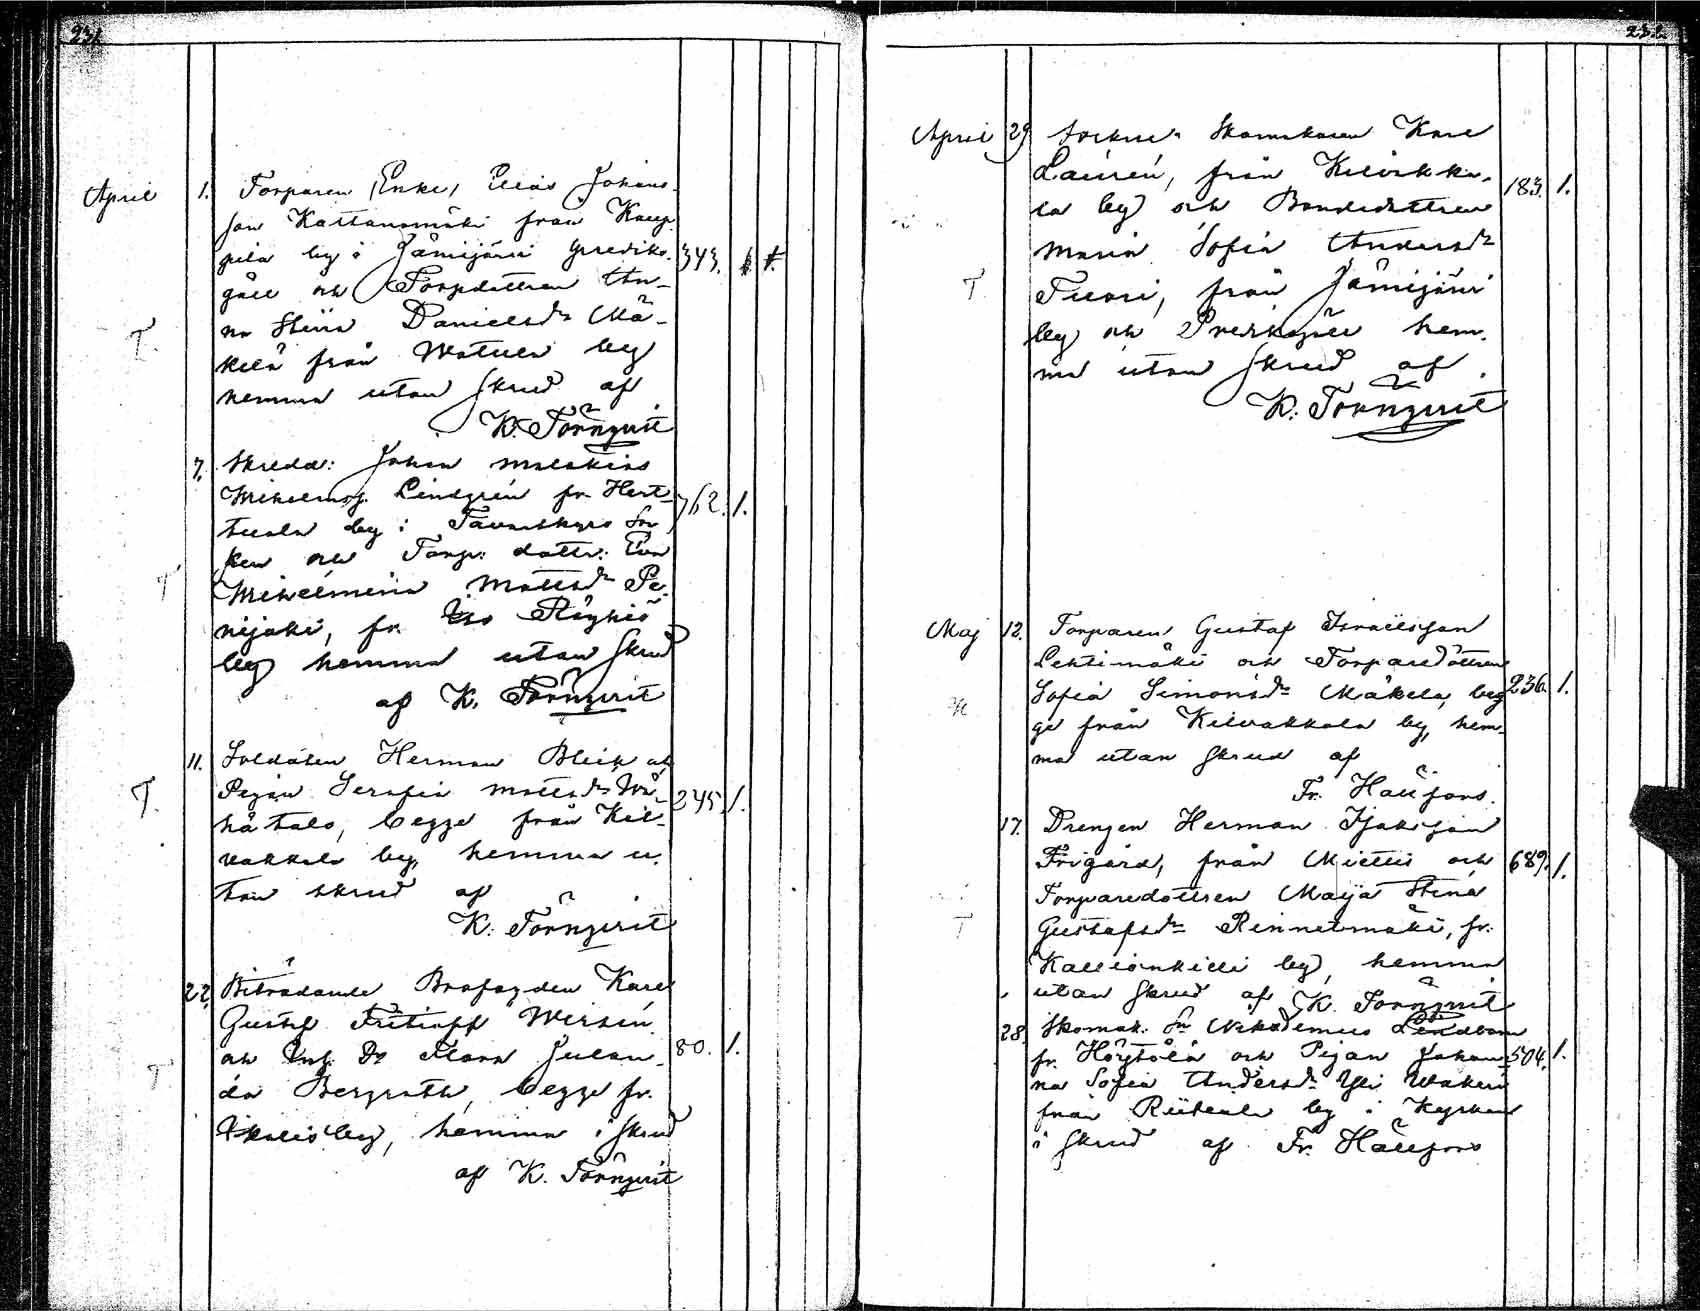 231
April 1. Torparen, Enkl, Elias Johans-
son Kattanamäki från Kaup-
pila by i Jämijärvi Prediko- 343. 1.
gäll och Torpdottren An-
na Stina Danielsdr Mä-
T.
kelä från Watula by
hemma utan skrud af
K. Törnqvist
7. Skredd: Johan Malakias
Wilhelmsj. Lindgrén fr. Hert- 762. 1.
tuala by i Tavastkyro Soc
ken och Torp: dottr: Eva
T
Wilhelmina Mattsdr Pe-
nijoki, fr. Iso Röyhiö
by hemma utan skrud
af K. Törnqvist
11. Soldaten Herman Bleik och
T. Pigan Serafia Mattsdr Wä- 245. 1.
hätalo, begge från Kil-
vakkala by, hemma u-
tan skrud af
K. Törnqvist
22. Biträdande Brofogden Karl
Gustaf Fritioff Wersén
och Dr Flora Julan- 80. 1.
T
da Bergroth, begge fr.
Ikalis by, hemma i skrud
af K. Törnqvist
232
April 29 Sockne- Skomakaren Karl
Laurén, från Kilvakka- 183. 1.
la by och Bondedottren
Maria Sofia Andersdr
T Tuori, från Jämijärvi
by och Predikogäll hem-
ma utan skrud af
K. Törnqvist
Maj 12. Torparen Gustaf Israelsson
Lehtimäki och Torparedottren
Sofia Simonsdr Mäkelä, beg 236. 1.
H
ge från Kilvakkala by, hem-
ma utan skrud af
Fr. Hällfors.
17. Drengen Herman Isaksson
Frigård, från Miettis och 689. 1.
Torparedottren Maja Stina
T
Gustafsdr Rinnetmäki, fr.
Kallionkilli by, hemma
utan skrud af K. Törnqvist
28. Skomak: Sn Nikodemus Lindbom
fr. Höytölä och Pigan Johan- 504. 1.
na Sofia Andersdr Yli Wakeri
från Riitiala by i Kyrkan
i skrud af Fr. Hällfors